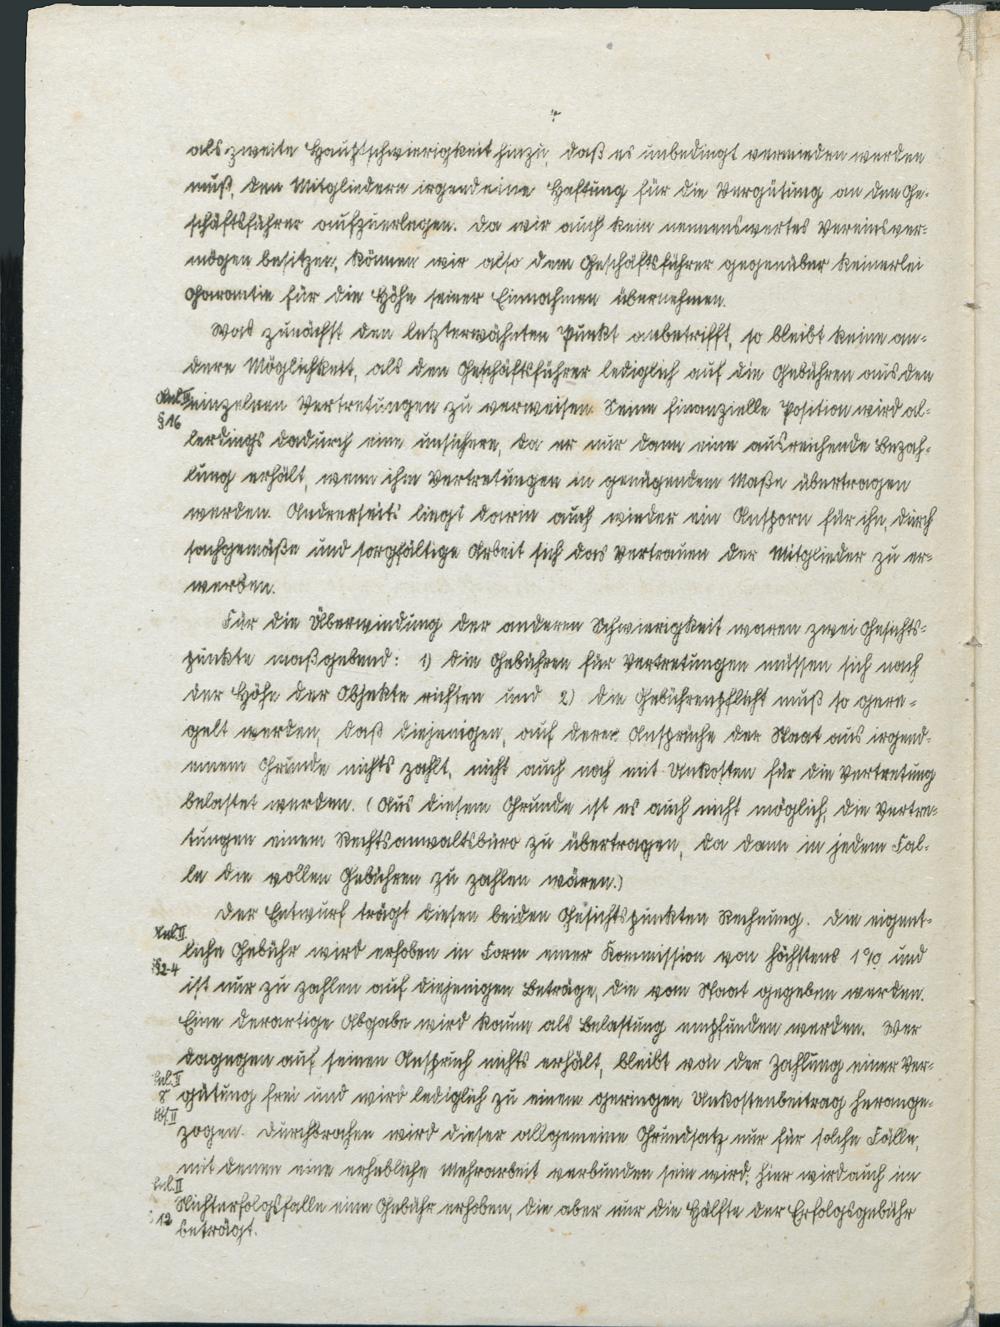 als zweite Hauptschwierigkeit hinzu, daß es unbedingt vermieden werden
muß, den Mitgliedern irgend eine Haftung für die Vergütung an den Ge-
schäftsführer aufzuerlegen. Da wir auch kein nennenswertes Vereinsver-
mögen besitzen, können wir also dem Geschäftsführer gegenüber keinerlei
Garantie für die Höhe seiner Einnahmen übernehmen.
Was zunächst den letzterwähnten Punkt anbetrifft, so bleibt keine an-
dere Möglichkeit, als den Geschäftsführer lediglich auf die Gebühren aus den
Anl. II einzelnen Vertretungen zu verweisen. Seine finanzielle Position wird al-
§ 16 lerdings dadurch eine unsichere, da er nur dann eine ausreichende Bezah-
lung erhält, wenn ihm Vertretungen in genügendem Maße übertragen
werden. Andrerseits liegt darin auch wieder ein Ansporn für ihn, durch
sachgemäße und sorgfältige Arbeit sich das Vertrauen der Mitglieder zu er-
werben.
Für die Überwindung der anderen Schwierigkeit waren zwei Gesichts-
punkte maßgebend: 1) die Gebühren für Vertretungen müssen sich nach
der Höhe der Objekte richten und 2) die Gebührenpflicht muß so gere-
gelt werden, daß diejenigen, auf deren Ansprüche der Staat aus irgend-
einem Grunde nichts zahlt, nicht auch noch mit Unkosten für die Vertretung
belastet werden. (Aus diesem Grunde ist es auch nicht möglich, die Vertre-
tungen einem Rechtsanwaltsbüro zu übertragen, da dann in jedem Fal-
le die vollen Gebühren zu zahlen wären.)
Der Entwurf trägt diesen beiden Gesichtspunkten Rechnung. Die eigent-
Anl. II liche Gebühr wird erhoben in Form einer Kommission von höchstens 1% und
§ 2-4 ist nur zu zahlen auf diejenigen Beträge, die vom Staat gegeben werden.
Eine derartige Abgabe wird kaum als Belastung empfunden werden. Wer
dagegen auf seinen Anspruch nichts erhält, bleibt von der Zahlung einer Ver-
Anl. II gütung frei und wird lediglich zu einem geringen Unkostenbeitrag herange-
Abs. II zogen. Durchbrochen wird dieser allgemeine Grundsatz nur für solche Fälle,
mit denen eine erhebliche Mehrarbeit verbunden sein wird; hier wird auch im
Anl. II Nichterfolgsfalle eine Gebühr erhoben, die aber nur die Hälfte der Erfolgsgebühr
beträgt.